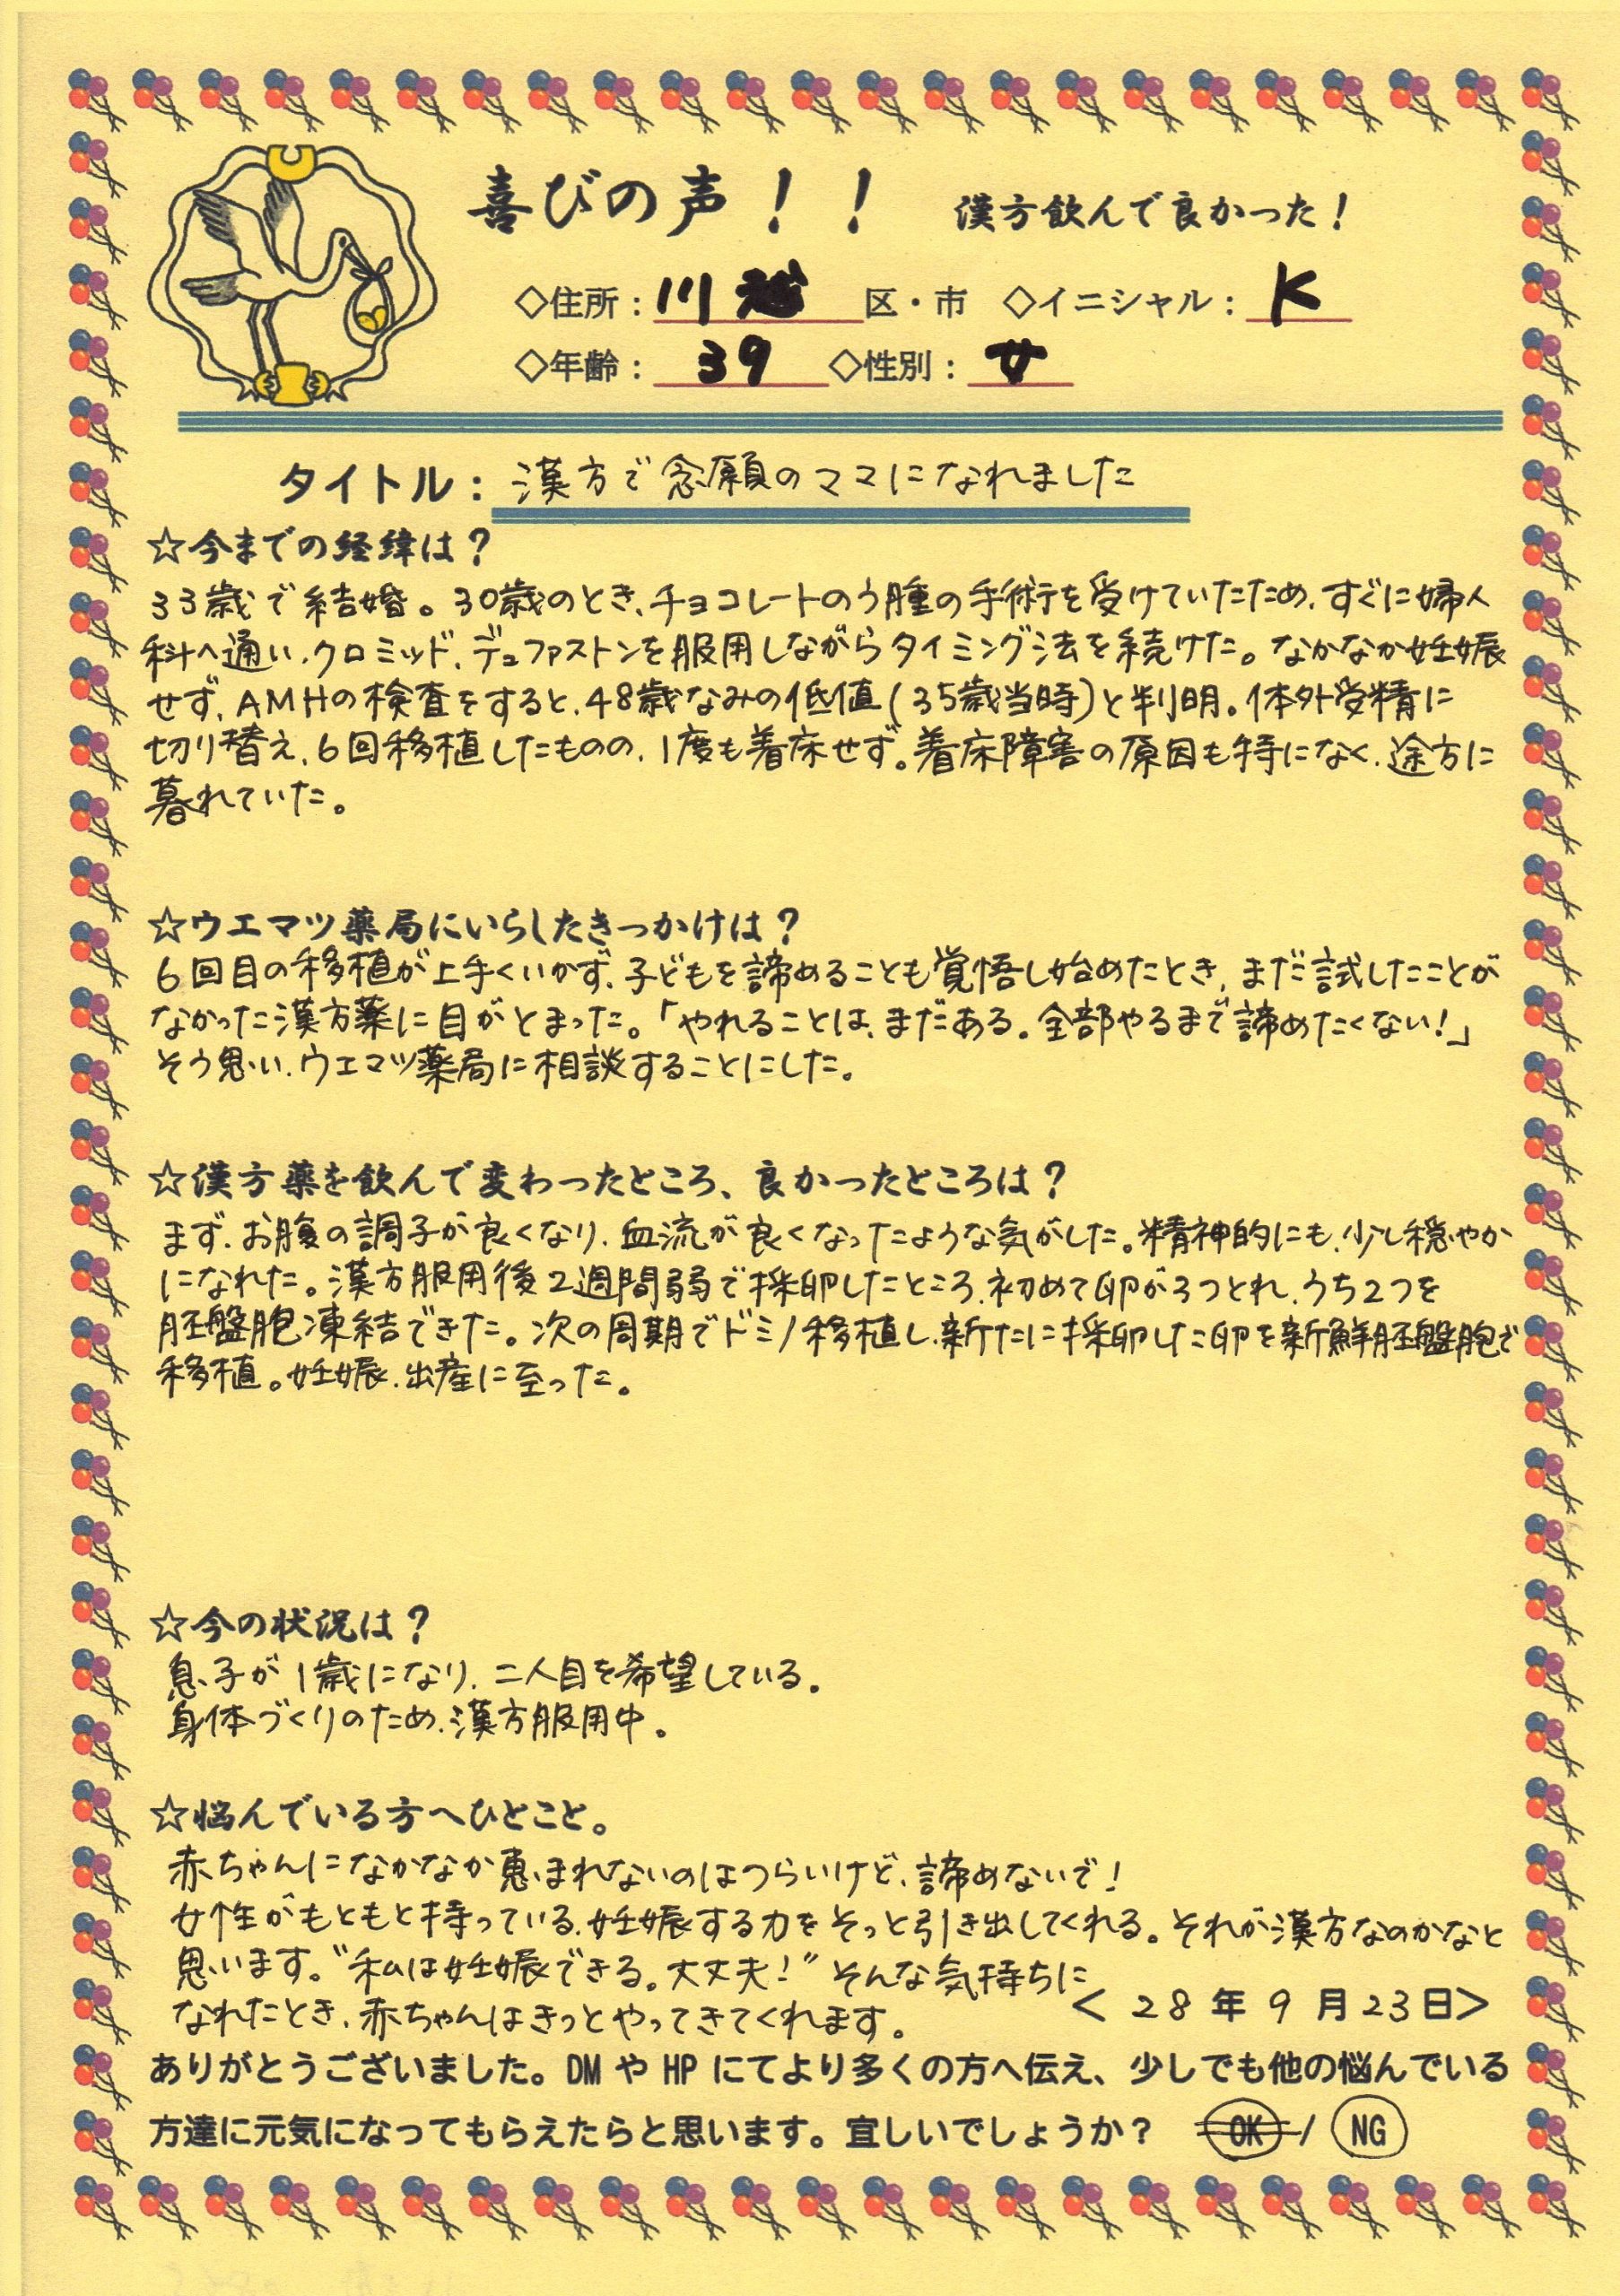 喜びの声！！　漢方飲んで良かった！
◇住所：川越 区・市　◇イニシャル：K
◇年齢：39　◇性別：女
タイトル：漢方で念願のママになれました
☆今までの経緯は？
33歳で結婚。30歳のとき、チョコレートのう腫の手術を受けていたため、すぐに婦人
科へ通い、クロミッド、デュファストンを服用しながらタイミング法を続けた。なかなか妊娠
せず、AMHの検査をすると、48歳なみの低値(35歳当時)と判明。体外受精に
切り替え、6回移植したものの、1度も着床せず。着床障害の原因も特になく、途方に
暮れていた。
☆ウエマツ薬局にいらしたきっかけは？
6回目の移植が上手くいかず、子どもを諦めることも覚悟し始めたとき、まだ試したことが
なかった漢方薬に目がとまった。「やれることは、まだある。全部やるまで諦めたくない！」
そう思い、ウエマツ薬局に相談することにした。
☆漢方薬を飲んで変わったところ、良かったところは？
まず、お腹の調子が良くなり、血流が良くなったような気がした。精神的にも、少し穏やか
になれた。漢方服用後2週間弱で採卵したところ、初めて卵が3つとれ、うち2つを
胚盤胞凍結できた。次の周期でドミノ移植し、新たに採卵した卵を新鮮胚盤胞で
移植。妊娠、出産に至った。
☆今の状況は？
息子が1歳になり、二人目を希望している。
身体づくりのため、漢方服用中。
☆悩んでいる方へひとこと。
赤ちゃんになかなか恵まれないのはつらいけど、諦めないで！
女性がもともと持っている、妊娠する力をそっと引き出してくれる。それが漢方なのかなと
思います。“私は妊娠できる。大丈夫！”そんな気持ちに
なれたとき、赤ちゃんはきっとやってきてくれます。
＜28年9月23日＞
ありがとうございました。DMやHPにてより多くの方へ伝え、少しでも他の悩んでいる
方達に元気になってもらえたらと思います。宜しいでしょうか？　OK / NG